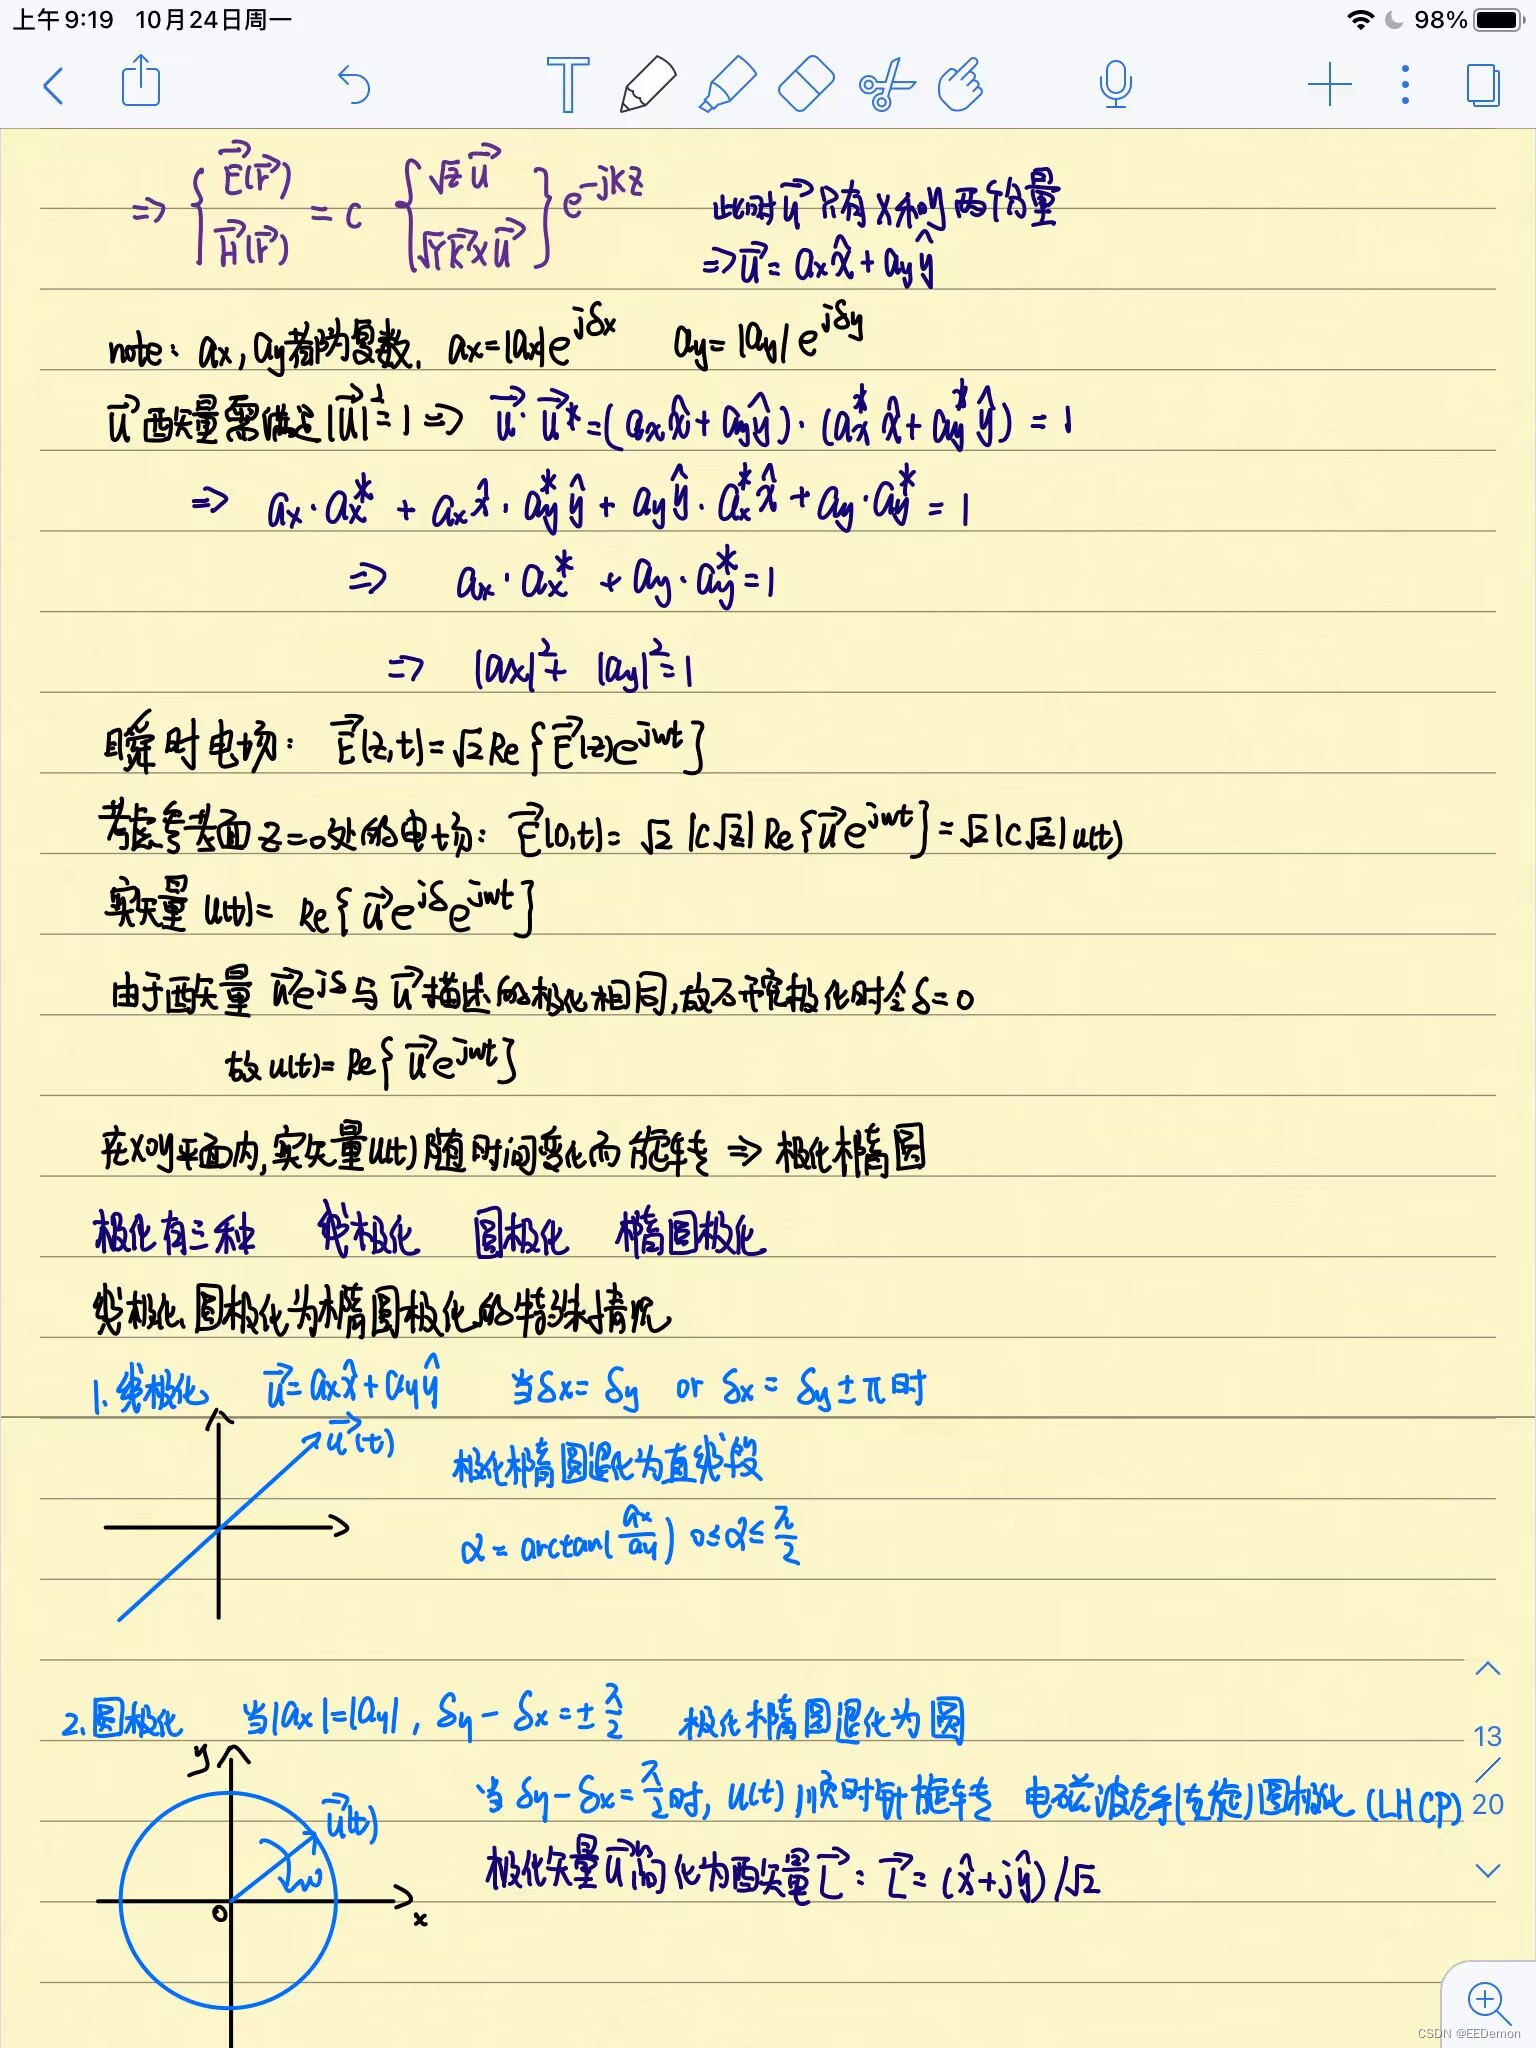 上午9:19 10月24日周一 98%
⇒ { E⃗(r⃗) H⃗(r⃗) = c { √z u⃗ √Y k⃗×u⃗ } e^{-jkz} 此时u⃗只有x和y两个分量
⇒ u⃗ = ax x̂ + ay ŷ
note: ax, ay都为复数. ax=|ax|e^{jδx} ay=|ay|e^{jδy}
u⃗ 酉矢量需满足|u⃗|²=1 ⇒ u⃗·u⃗*=(ax x̂+ay ŷ)·(ax* x̂+ay* ŷ)=1
⇒ ax·ax* + ax x̂·ay* ŷ + ay ŷ·ax* x̂ + ay·ay* = 1
⇒ ax·ax* + ay·ay* = 1
⇒ |ax|²+ |ay|²=1
瞬时电场: E⃗(z,t)=√2 Re{E⃗(z)e^{jwt}}
考虑参考面z=0处的电场: E⃗(0,t)=√2 |c√z| Re{u⃗e^{jwt}}=√2|c√z|u(t)
实矢量 u(t)= Re{u⃗e^{jδ}e^{jwt}}
由于酉矢量 u⃗e^{jδ}与u⃗描述的极化相同,故研究极化时令δ=0
故u(t)=Re{u⃗e^{jwt}}
在xoy平面内,实矢量u(t)随时间变化而旋转 ⇒ 极化椭圆
极化有三种 线极化 圆极化 椭圆极化
线极化、圆极化为椭圆极化的特殊情况
1.线极化 u⃗=ax x̂+ay ŷ 当δx=δy or δx=δy±π时
u⃗(t) 极化椭圆退化为直线段
α=arctan(ax/ay) 0≤α≤π/2
2.圆极化 当|ax|=|ay|, δy-δx=±π/2 极化椭圆退化为圆
13
y
当δy-δx=π/2时, u(t)顺时针旋转 电磁波左手(左旋)圆极化 (LHCP)
20
u⃗(t)
极化矢量u⃗简化为酉矢量L⃗: L⃗=(x̂+jŷ)/√2
w
o x
CSDN @EEDemon